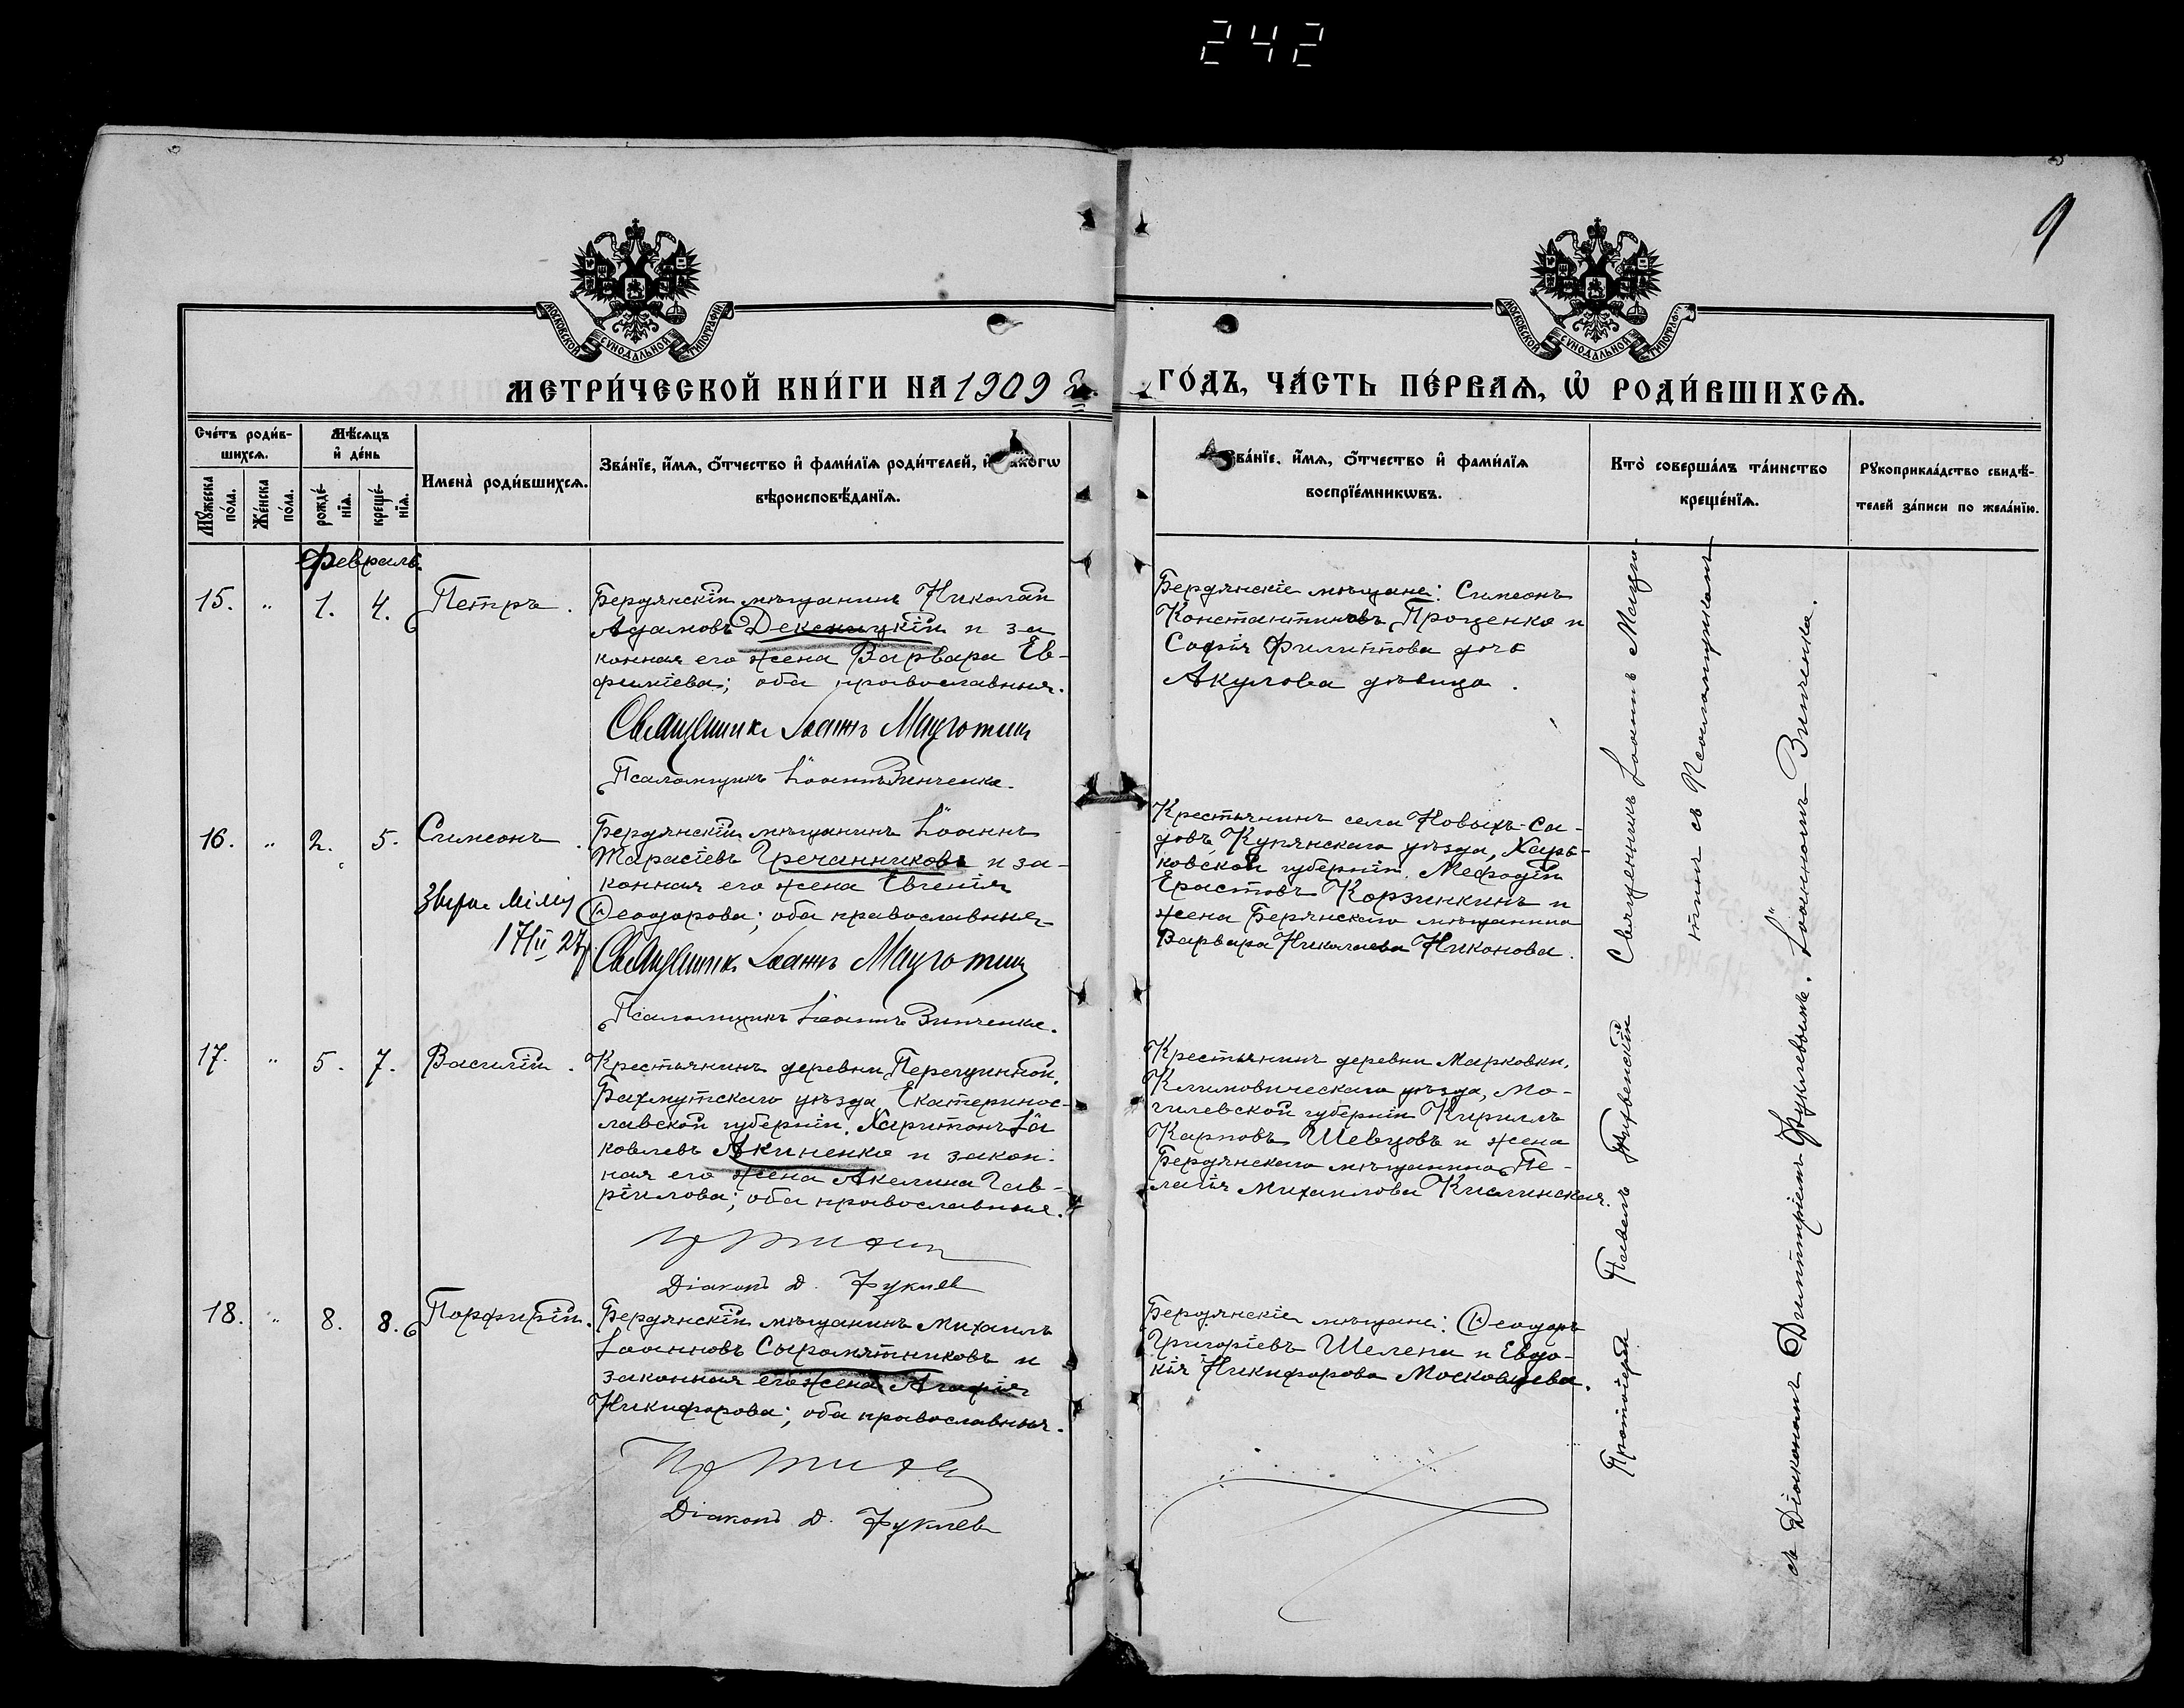 242
9
МОСКОВСКОЙ СѴНОДАЛЬНОЙ ТИПОГРАФІИ
МОСКОВСКОЙ СѴНОДАЛЬНОЙ ТИПОГРАФІИ
МЕТРИ́ЧЕСКОЙ КНИ́ГИ НА 1909 ГО́ДЪ, ЧА́СТЬ ПЕ́РВАѦ, Ѽ РОДИ́ВШИХСѦ.
Сче́тъ роди́в-
шихсѧ.
Мꙋжеска по́ла.
Же́нска по́ла.
Мѣ́сѧцъ
и҆ де́нь
рожде́-
нїѧ.
креще́-
нїѧ.
Имена̀ роди́вшихсѧ.
Зва́нїе, и҆́мѧ, ѻ҆́тчество и҆ фами́лїѧ роди́телей, и҆ како́гѡ
вѣроисповѣ́данїѧ.
Зва́нїе, и҆́мѧ, ѻ҆́тчество и҆ фами́лїѧ
воспрїе́мникѡвъ.
Кто̀ соверша́лъ та́инство
креще́нїѧ.
Рꙋкоприкла́дство свидѣ́-
телей за́писи по жела́нїю.
Февраль.
15. " 1. 4. Петръ.
Бердянскій мѣщанинъ Николай
Адамовъ Декснуцкій и за
конная его жена Варвара Ев-
фиміева; оба православныя.
Священникъ Іоаннъ
Псаломщикъ Іоаннъ Зинченко.
Бердянскіе мѣщане: Симеонъ
Константиновъ Проценко и
Софія Филиппова дочь
Акулова дѣвица.
16. " 2. 5. Симеонъ.
17/II 27
Бердянскій мѣщанинъ Іоаннъ
Тарасіевъ Гречанниковъ и за-
конная его жена Евгенія
Ѳеодорова; оба православные
Священникъ Іоаннъ
Псаломщикъ Іоаннъ Зинченко.
Крестьянинъ села Новыхъ-Са-
довъ Купянскаго уѣзда, Харь-
ковской губерніи, Мефодій
Ерастовъ Корзинкинъ и
жена Берянскаго мѣщанина
Варвара Николаева Никонова.
17. " 5. 7. Василій.
Крестьянинъ деревни Перещинной,
Бахмутскаго уѣзда Екатеринос-
лавской губерніи, Харитонъ Іа
ковлевъ Акиненко и закон-
ная его жена Акелина Гав-
ріилова; оба православные.
Діаконъ Д. Фуклев
Крестьянинъ деревни Марковки,
Климовическаго уѣзда, Мо-
гилевской губерніи Кириллъ
Карповъ Шевцовъ и жена
Бердянскаго мѣщанина Пе-
лагія Михаилова Кислинская.
18. " 8. 8. Порфирій.
Бердянскій мѣщанинъ Михаилъ
Іоанновъ Сыромятниковъ и
законная его жена Агафія
Никифорова; оба православныя.
Діаконъ Д. Фуклев
Бердянскіе мѣщане: Ѳеодоръ
Григоріевъ Шелепа и Евдо-
кія Никифорова Московцева.
Священникъ Іоаннъ
съ Псаломщикомъ
Протоіерей Павелъ Тихвенскій
съ Діакономъ Димитріемъ Фуклевымъ. Іоанномъ Зинченко.